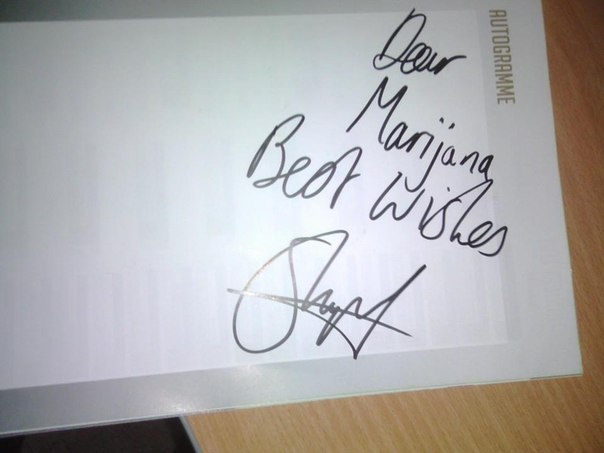 AUTOGRAMME
Dear
Marijana
Best Wishes